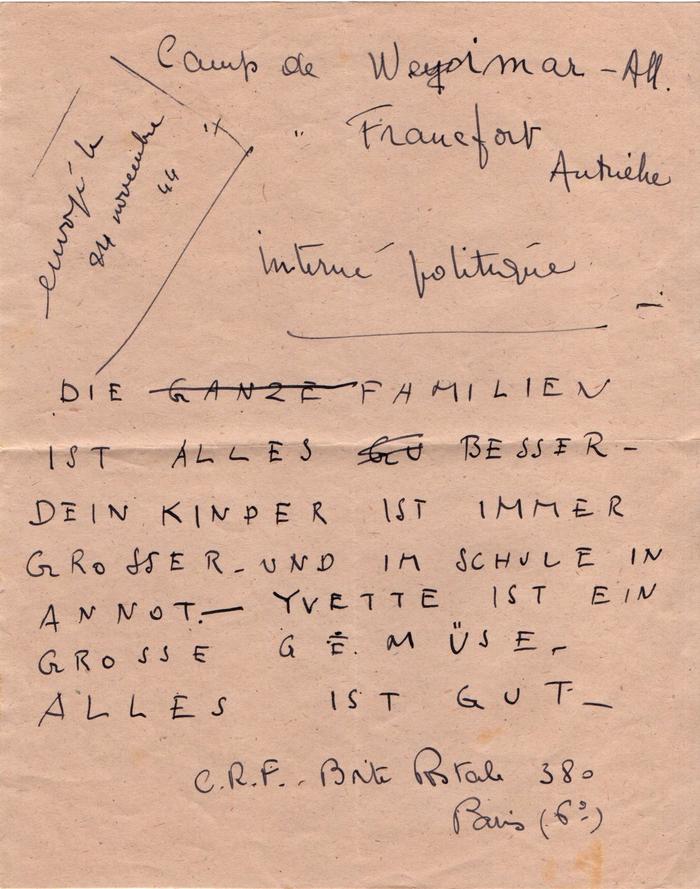 Camp de Weydimar - All.
" Francfort
Autriche
envoyé le
24 novembre
44
Interné politique
DIE GANZE FAMILIEN
IST ALLES GU BESSER -
DEIN KINDER IST IMMER
GROSSER - UND IM SCHULE IN
ANNOT. — YVETTE IST EIN
GROSSE GEMÜSE -
ALLES IST GUT -
C.R.F. - Boite Postale 380
Paris (6e)